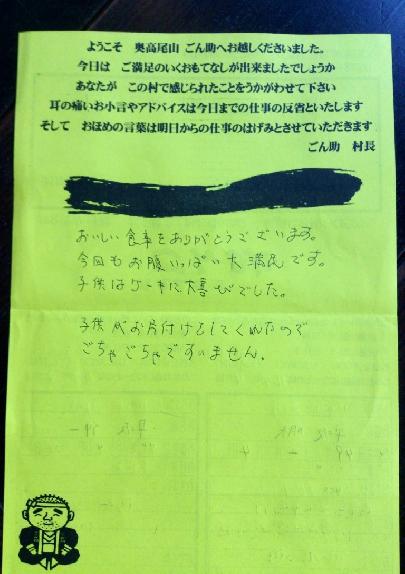 ようこそ 奥高尾山 ごん助へお越しくださいました。
今日は ご満足のいくおもてなしが出来ましたでしょうか
あなたが この村で感じられたことをうかがわせて下さい
耳の痛いお小言やアドバイスは今日までの仕事の反省といたします
そして おほめの言葉は明日からの仕事のはげみとさせていただきます
ごん助 村長
おいしい食事をありがとうございます。
今回もお腹いっぱい大満足です。
子供はケーキに大喜びでした。
子供がお片付けをしてくれたので
ごちゃごちゃですみません。